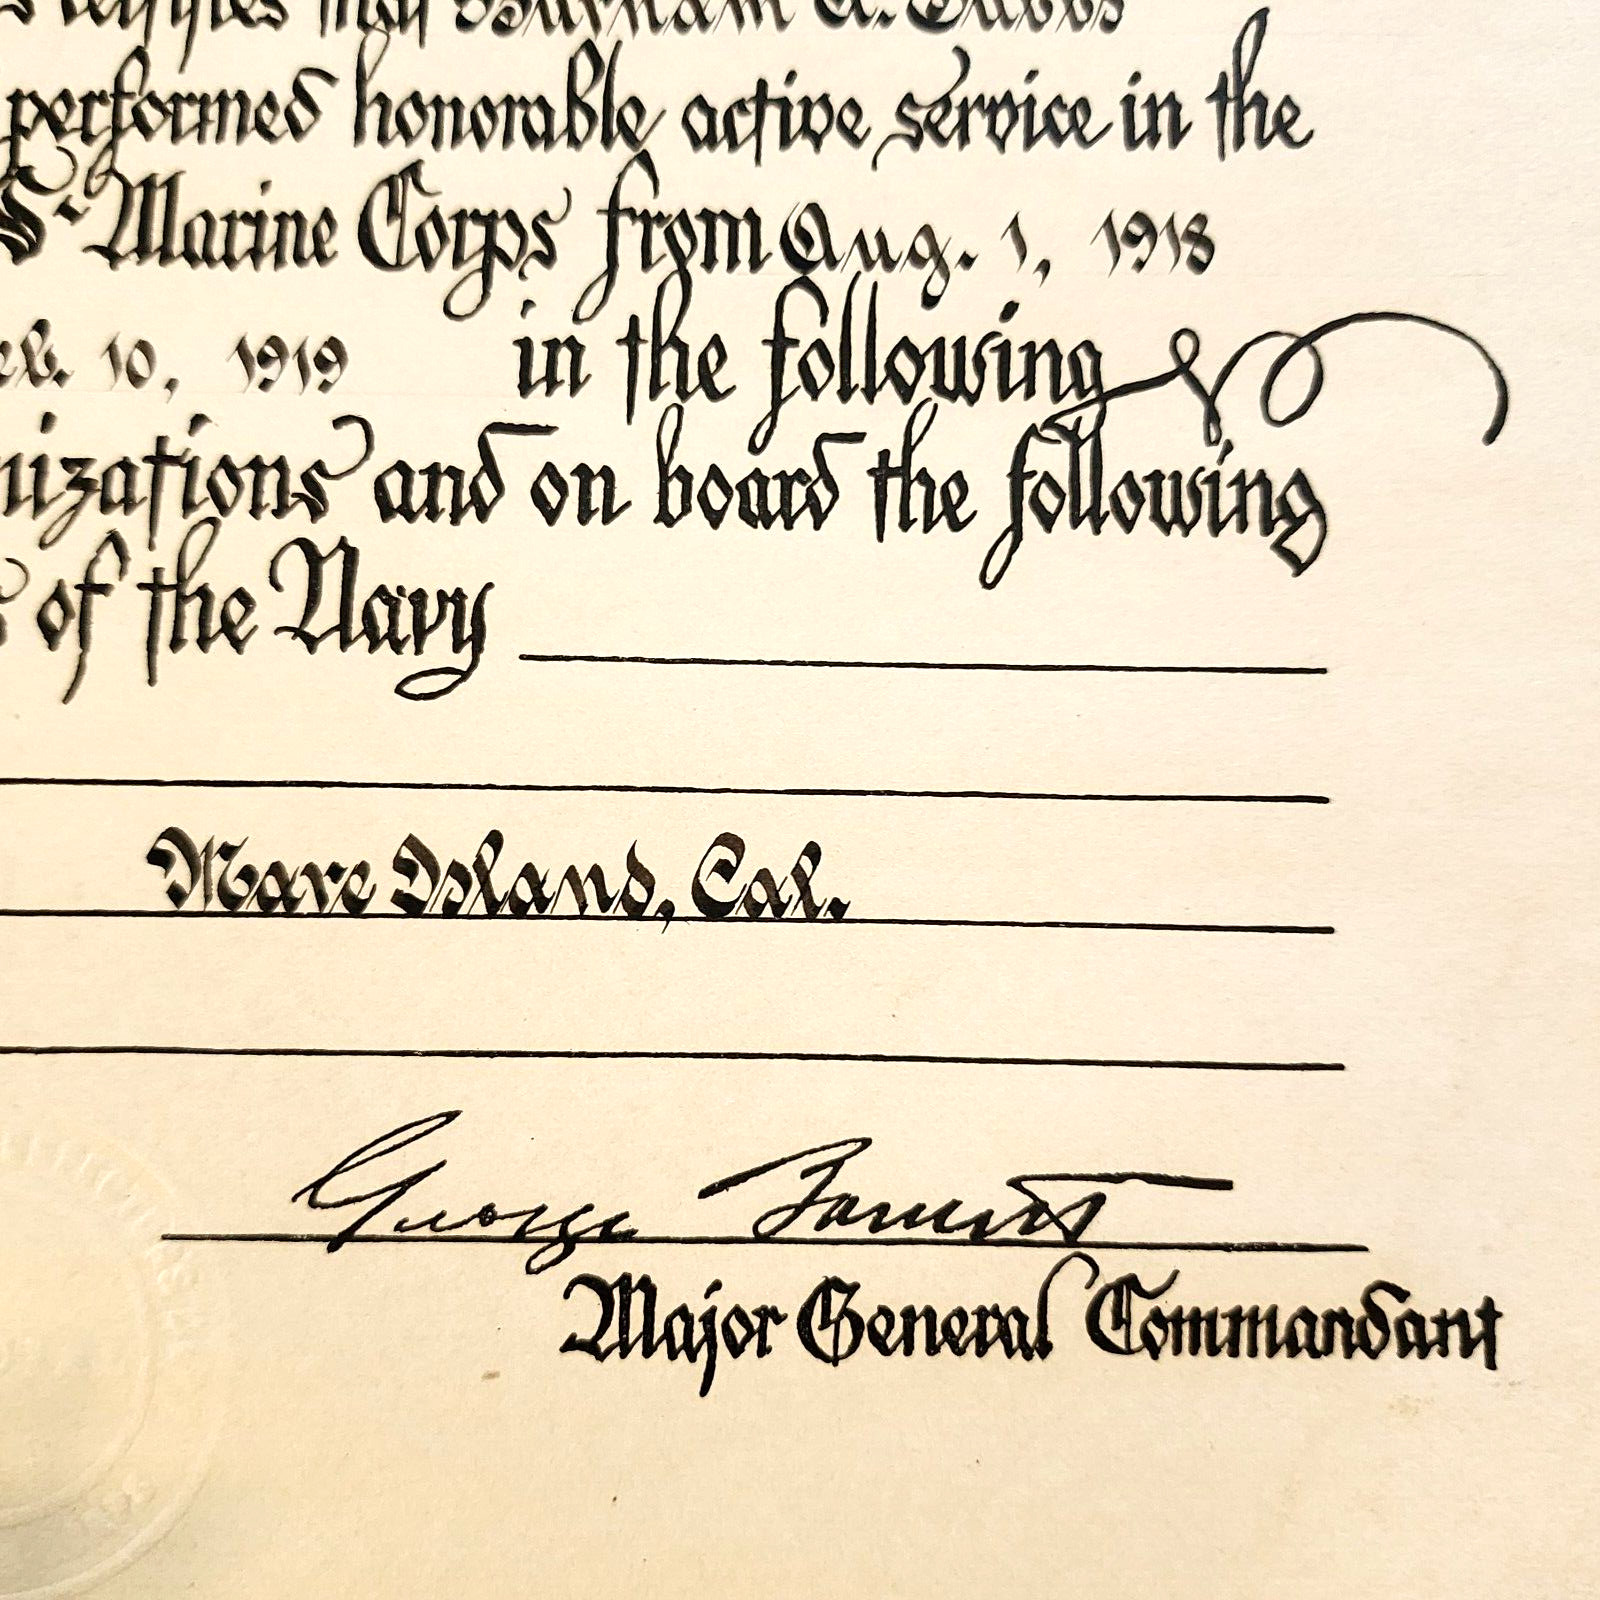 certifies that Burnham A. Tubbs
performed honorable active service in the
S. Marine Corps from Aug. 1, 1918
eb. 10, 1919 in the following
nizations and on board the following
s of the Navy
Mare Island, Cal.
George Barnett
Major General Commandant